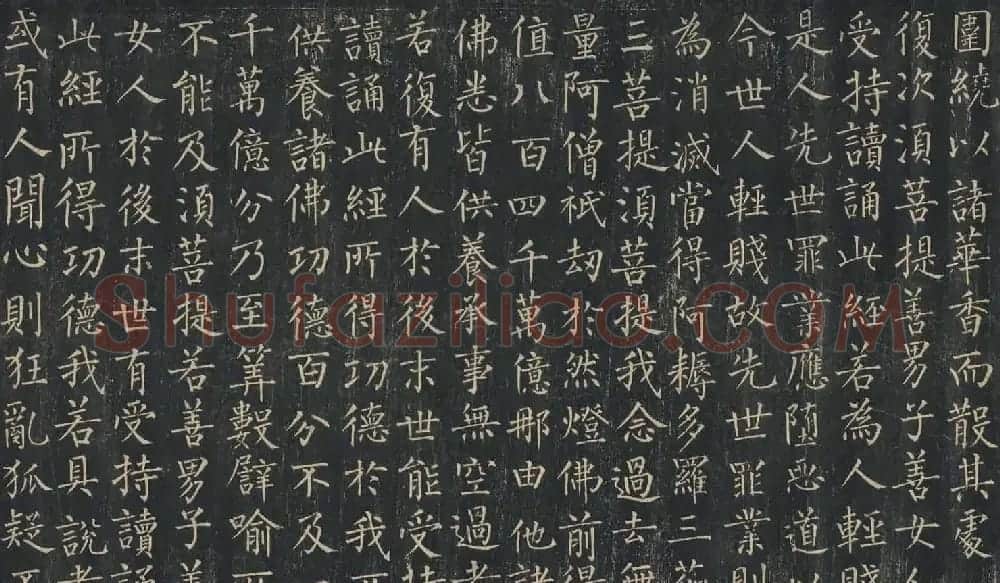 圍繞以諸華香而散其處
復次須菩提善男子善女
受持讀誦此經若為人輕賤
是人先世罪業應堕惡道
今世人輕賤故先世罪業則
為消滅當得阿耨多羅三藐
三菩提須菩提我念過去無
量阿僧祇劫於然燈佛前得
值八百四千萬億那由他諸
佛悉皆供養承事無空過者
若復有人於後末世能受持
讀誦此經所得功德於我
供養諸佛功德百分不及
千萬億分乃至筭數譬喻
不能及須菩提若善男子善
女人於後末世有受持讀誦
此經所得功德我若具說者
或有人聞心則狂亂狐疑不
Shufaziliao.COM